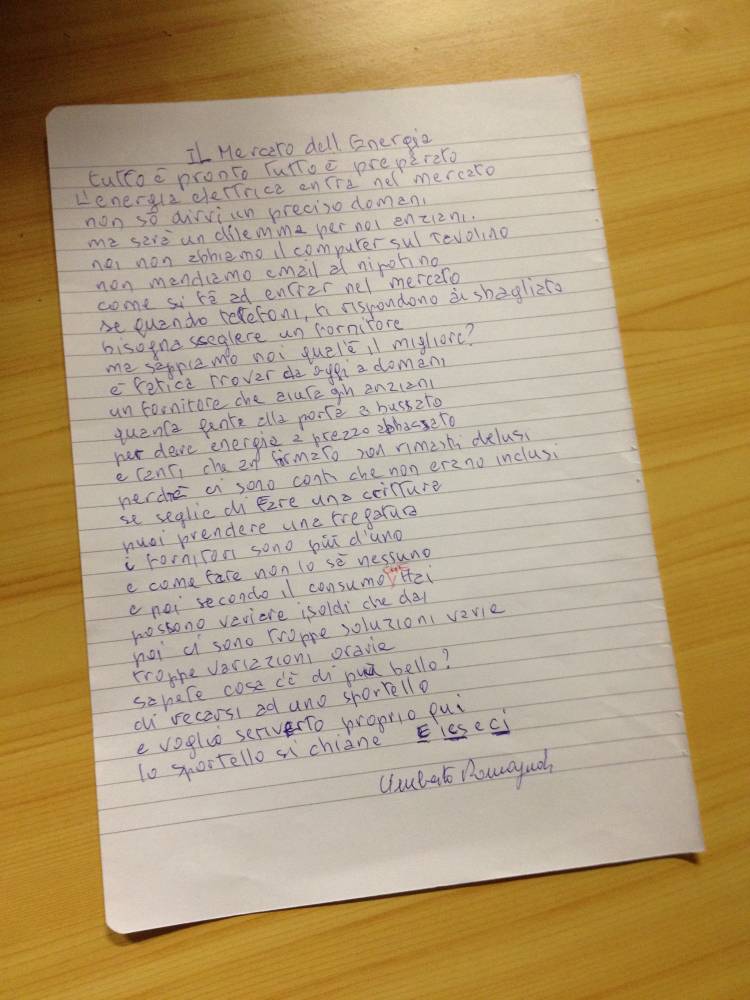 Il Mercato dell Energia
tutto è pronto tutto è preparato
L'energia elettrica entra nel mercato
non sò dirvi un preciso domani
ma sarà un dilemma per noi anziani.
noi non abbiamo il computer sul tavolino
non mandiamo email al nipotino
come si fà ad entrar nel mercato
se quando telefoni, ti rispondono di sbagliato
bisogna sceglere un fornitore
ma sappiamo noi qual'è il migliore?
è fatica trovar da oggi a domani
un fornitore che aiuta gli anziani
quanta gente alla porta a bussato
per dare energia a prezzo abbassato
e tanti che an firmato son rimasti delusi
perchè ci sono conti che non erano inclusi
se seglie di fare una scrittura
puoi prendere una fregatura
i fornitori sono più d'uno
e come fare non lo sà nessuno
e poi secondo il consumo che fai
possono variare i soldi che dai
poi ci sono troppe soluzioni varie
troppe variazioni orarie
sapete cosa c'è di più bello?
di recarsi ad uno sportello
e voglio scriverlo proprio qui
lo sportello si chiane Eicseci
Umberto Romagnoli